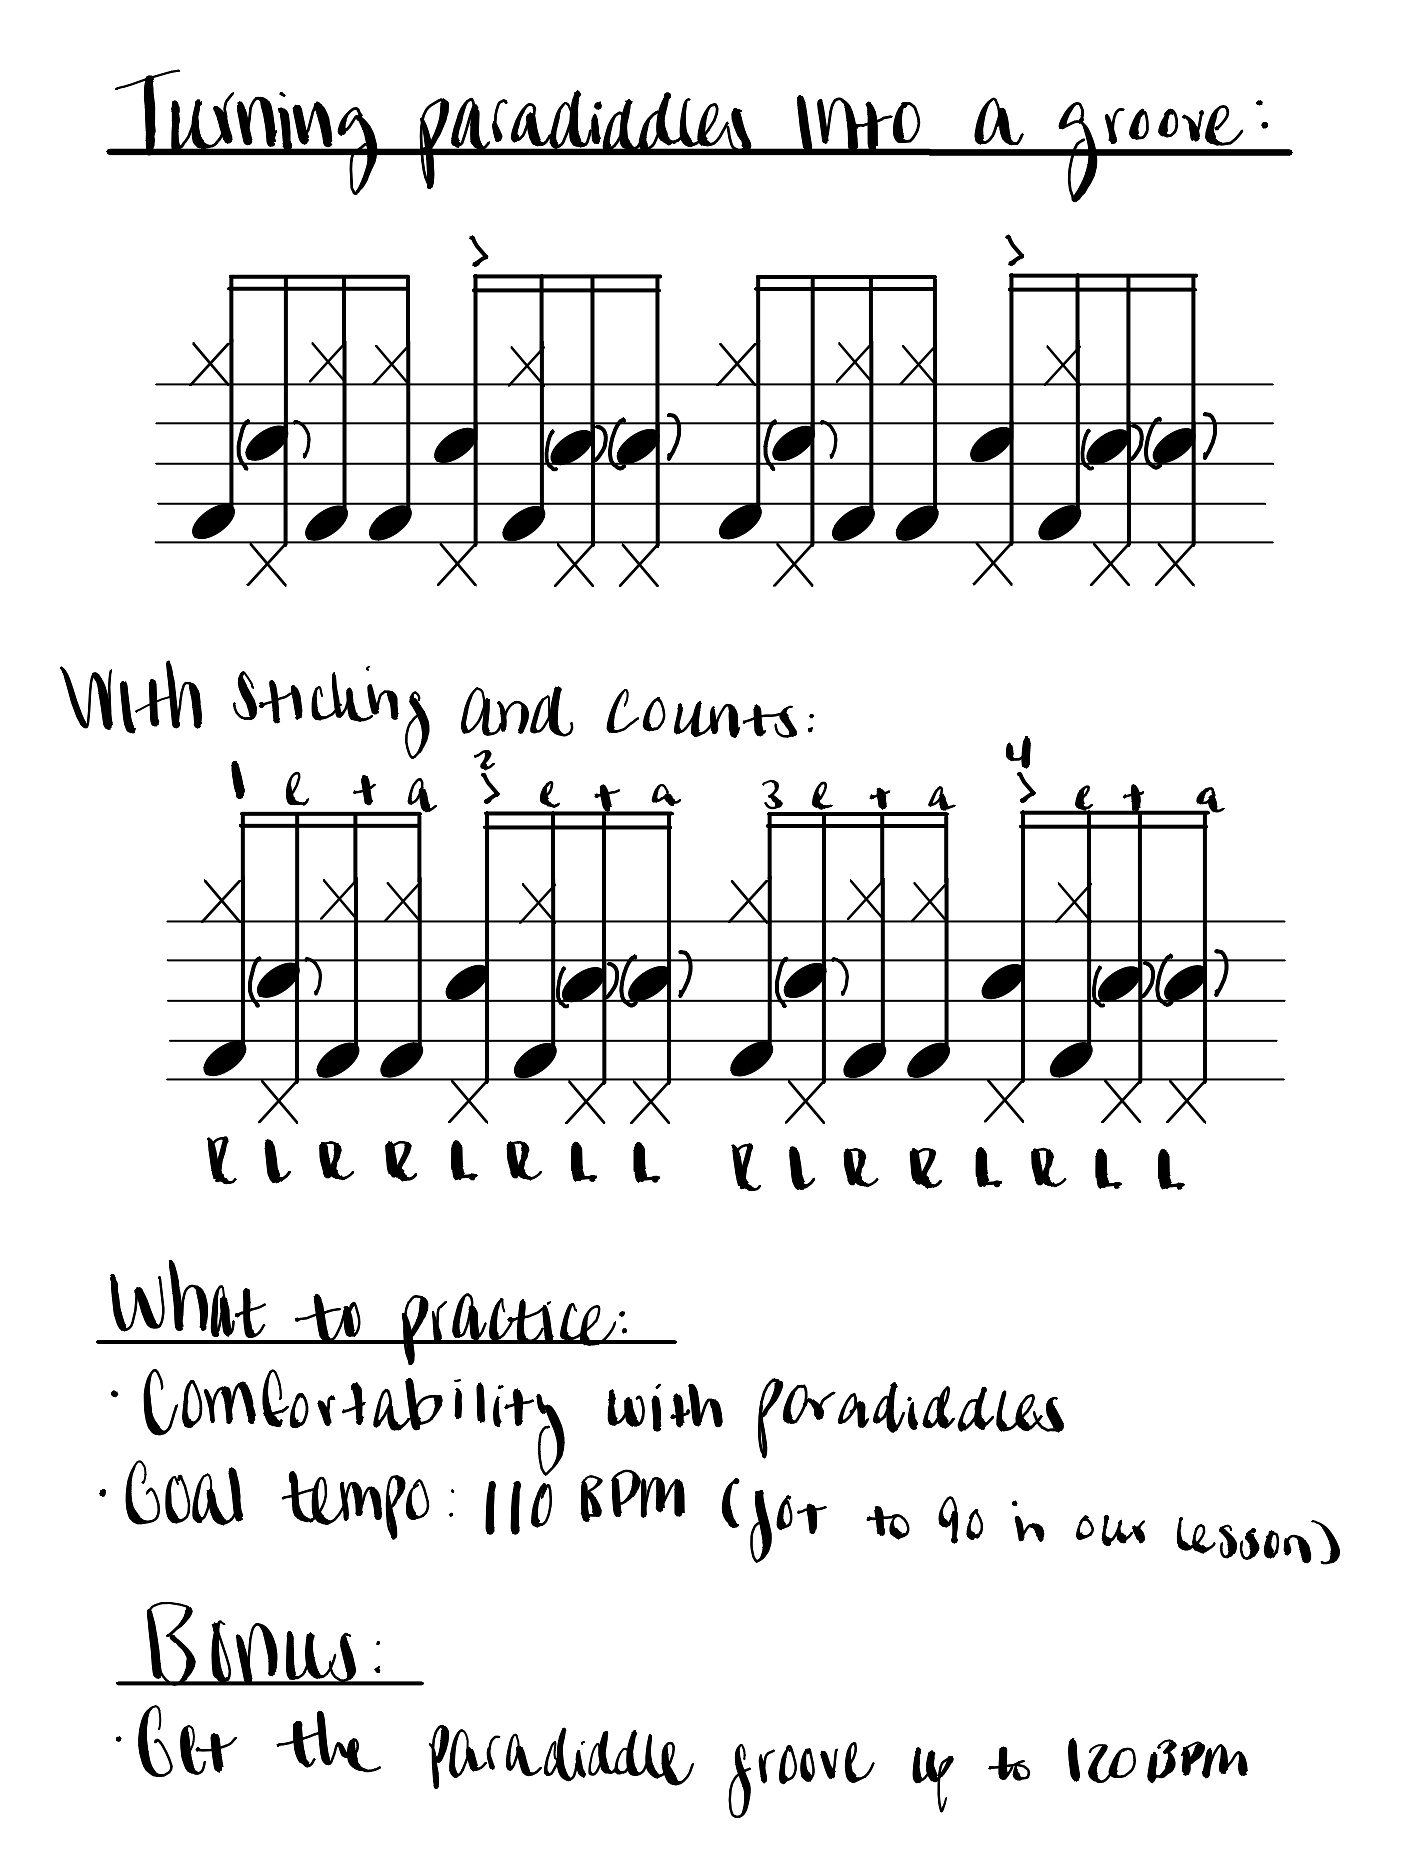 Turning paradiddles into a groove:
>
>
With sticking and counts:
1 e + a 2 > e + a 3 e + a 4 > e + a
R L R R L R L L R L R R L R L L
What to practice:
· Comfortability with paradiddles
· Goal tempo: 110 BPM (got to 90 in our lesson)
Bonus:
· Get the paradiddle groove up to 120 BPM